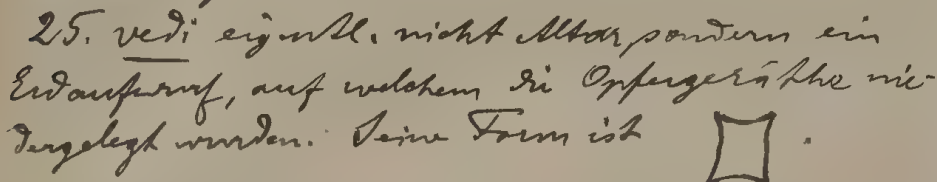 25. vedi eigentl. nicht Altar, sondern ein
Erdaufwurf, auf welchem die Opfergeräthe nie-
dergelegt wurden. Seine Form ist .